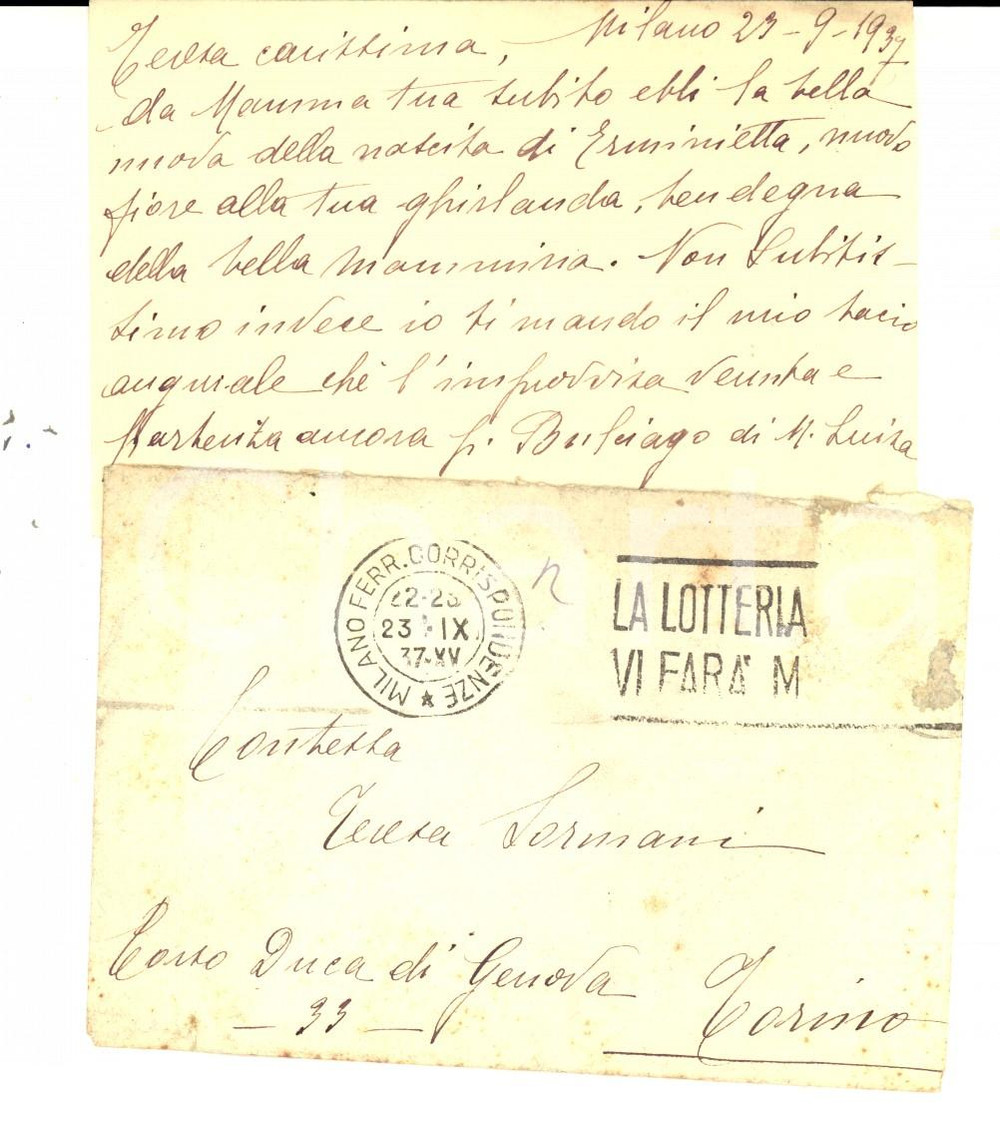 Milano 23-9-1937
Teresa carissima,
da Mamma tua subito ebbi la bella
nuova della nascita di Erminietta, nuovo
fiore alla tua ghirlanda, ben degna
della bella mammina. Non subitis-
simo invece io ti mando il mio bacio
augurale chè l'improvvisa venuta e
partenza ancora p. Bulciago di M. Luisa
MILANO FERR. CORRISPONDENZE
22-23
23 IX
37-XV
LA LOTTERIA
VI FARA' M
Contessa
Teresa Sormani
Corso Duca di Genova
- 33 -
Torino